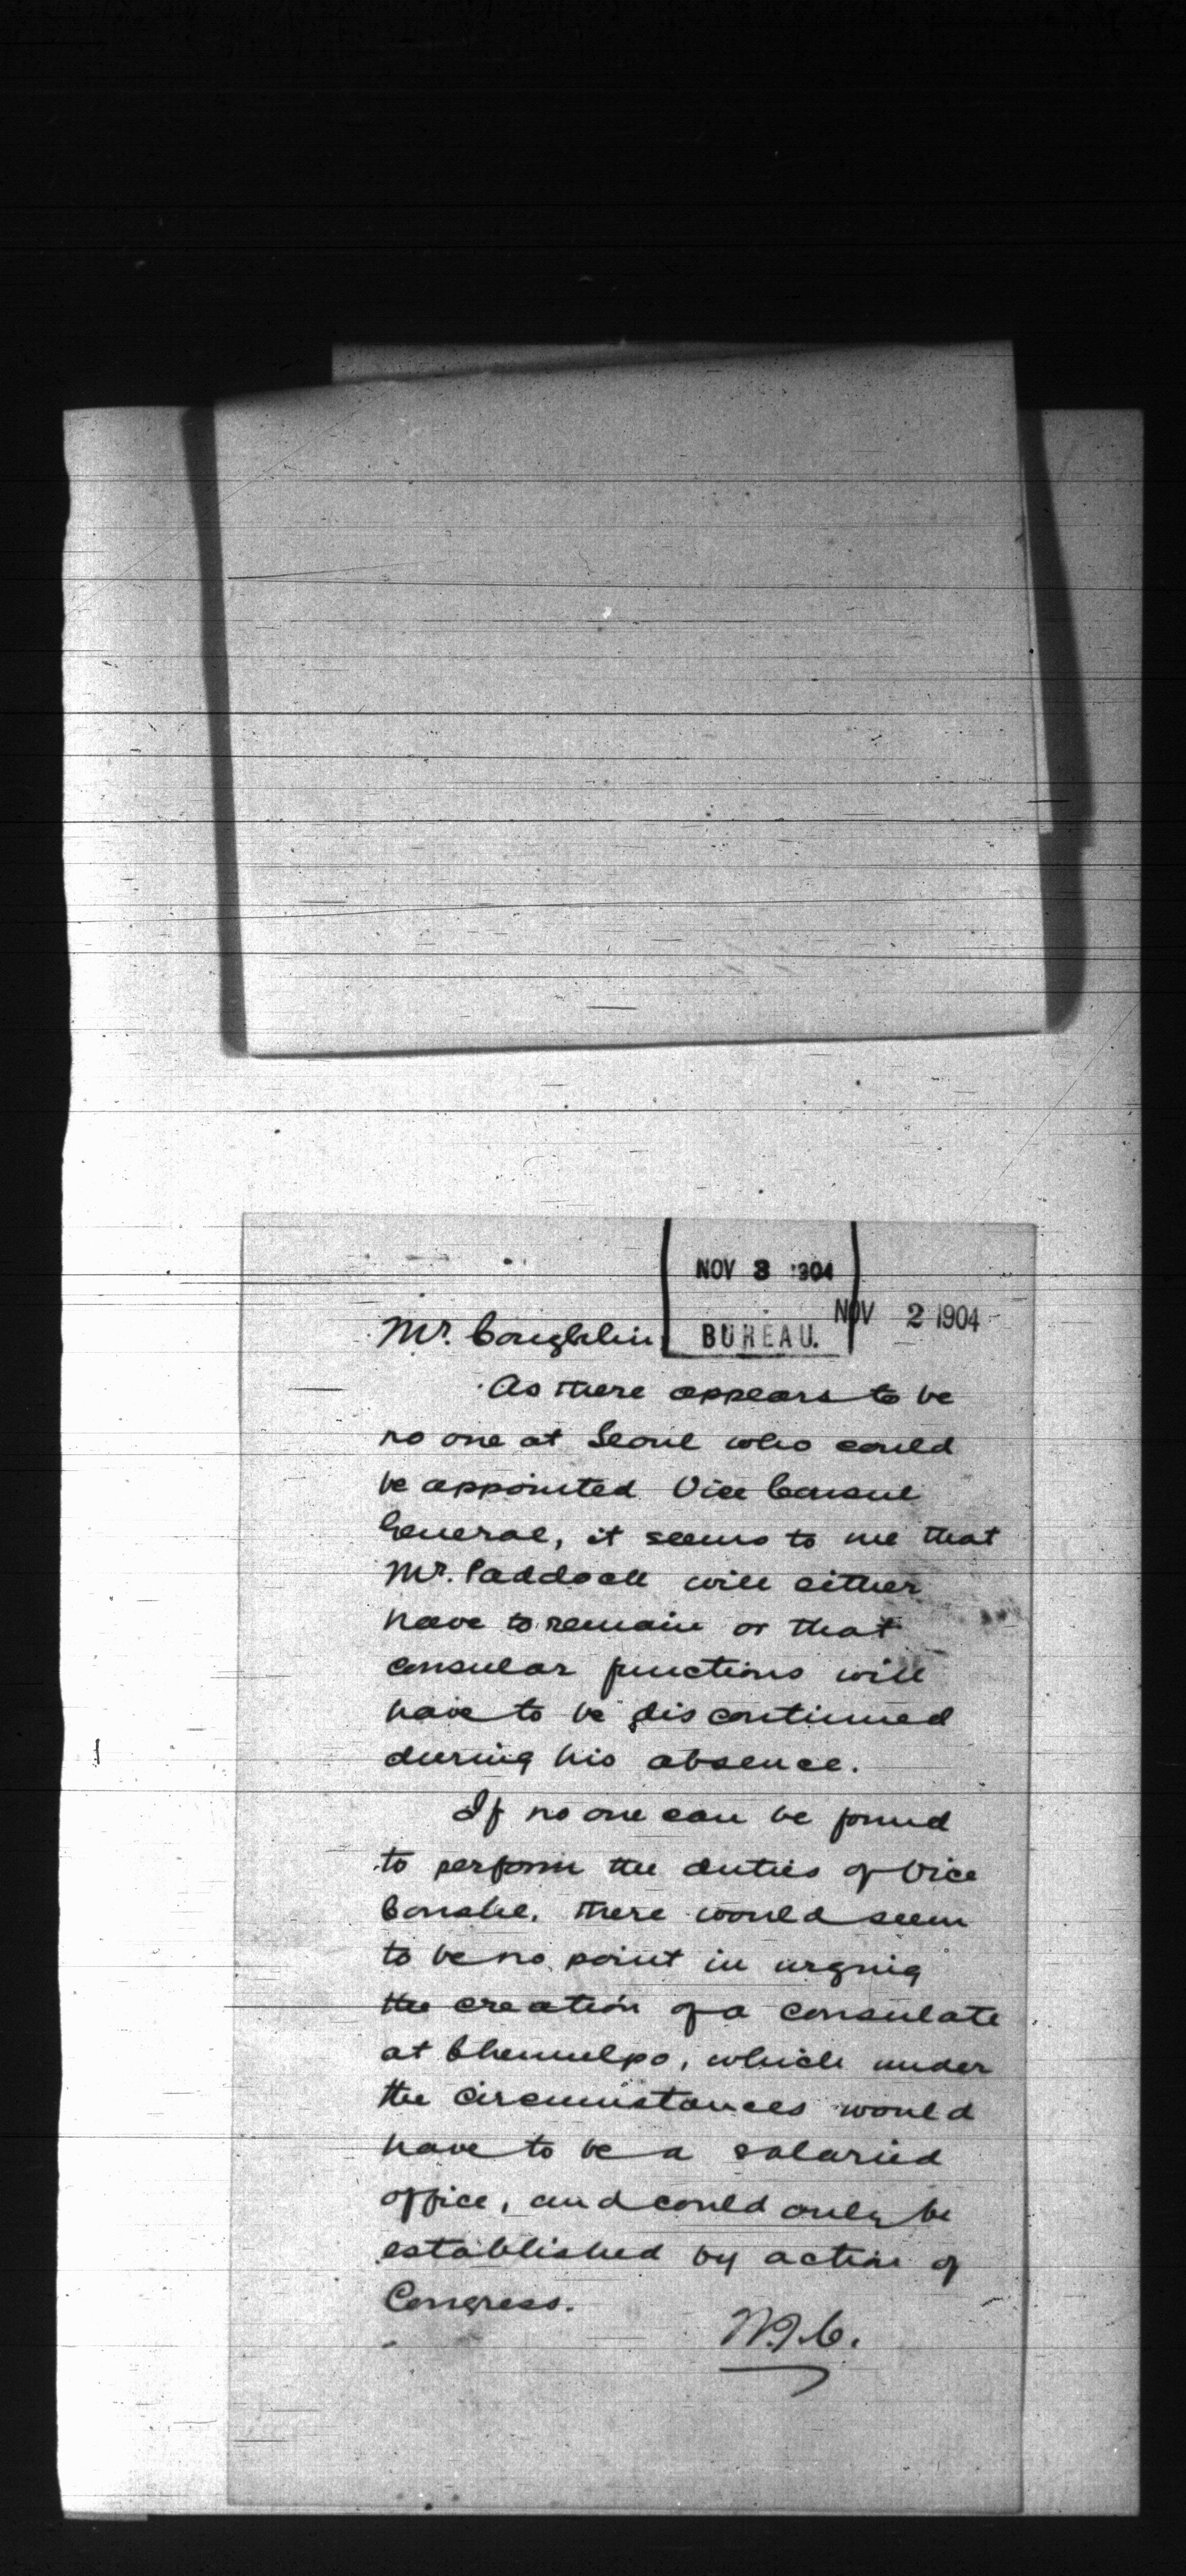 NOV 3 1904
NOV 2 1904
BUREAU.
Mr. Coughlin,
As there appears to be
no one at Seoul who could
be appointed Vice Consul
General, it seems to me that
Mr. Paddock will either
have to remain or that
consular functions will
have to be discontinued
during his absence.
If no one can be found
to perform the duties of Vice
there would seem
to be no point in urging
the creation of a consulate
at Chemulpo, which under
the circumstances would
have to be a salaried
office, and could only be
established by action of
Congress.